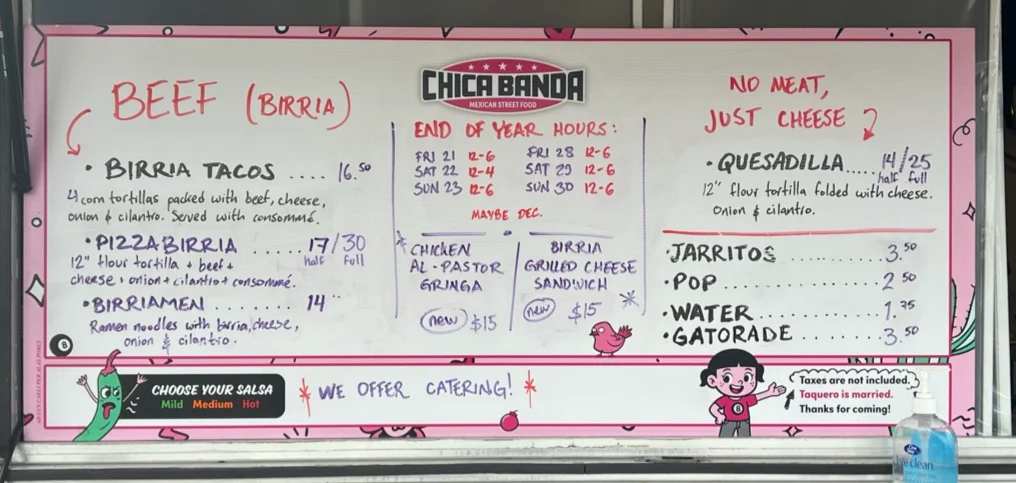 BEEF (BIRRIA)
• BIRRIA TACOS .... 16.50
4 corn tortillas packed with beef, cheese,
onion & cilantro. Served with consommé.
• PIZZABIRRIA ..... 17/30
half full
12" flour tortilla + beef +
cheese + onion + cilantro + consommé.
• BIRRIAMEN ........ 14
Ramen noodles with birria, cheese,
onion & cilantro.
8
CHICA BANDA
MEXICAN STREET FOOD
END OF YEAR HOURS:
FRI 21 12-6 FRI 28 12-6
SAT 22 12-4 SAT 29 12-6
SUN 23 12-6 SUN 30 12-6
MAYBE DEC.
CHICKEN
AL-PASTOR
GRINGA
new $15
BIRRIA
GRILLED CHEESE
SANDWICH
new $15
NO MEAT,
JUST CHEESE
• QUESADILLA..... 14/25
half full
12" flour tortilla folded with cheese.
Onion & cilantro.
• JARRITOS ........... 3.50
• POP ................. 2 50
• WATER ............. 1.75
• GATORADE ....... 3.50
CHOOSE YOUR SALSA
Mild Medium Hot
* WE OFFER CATERING! *
8
Taxes are not included.
Taquero is married.
Thanks for coming!